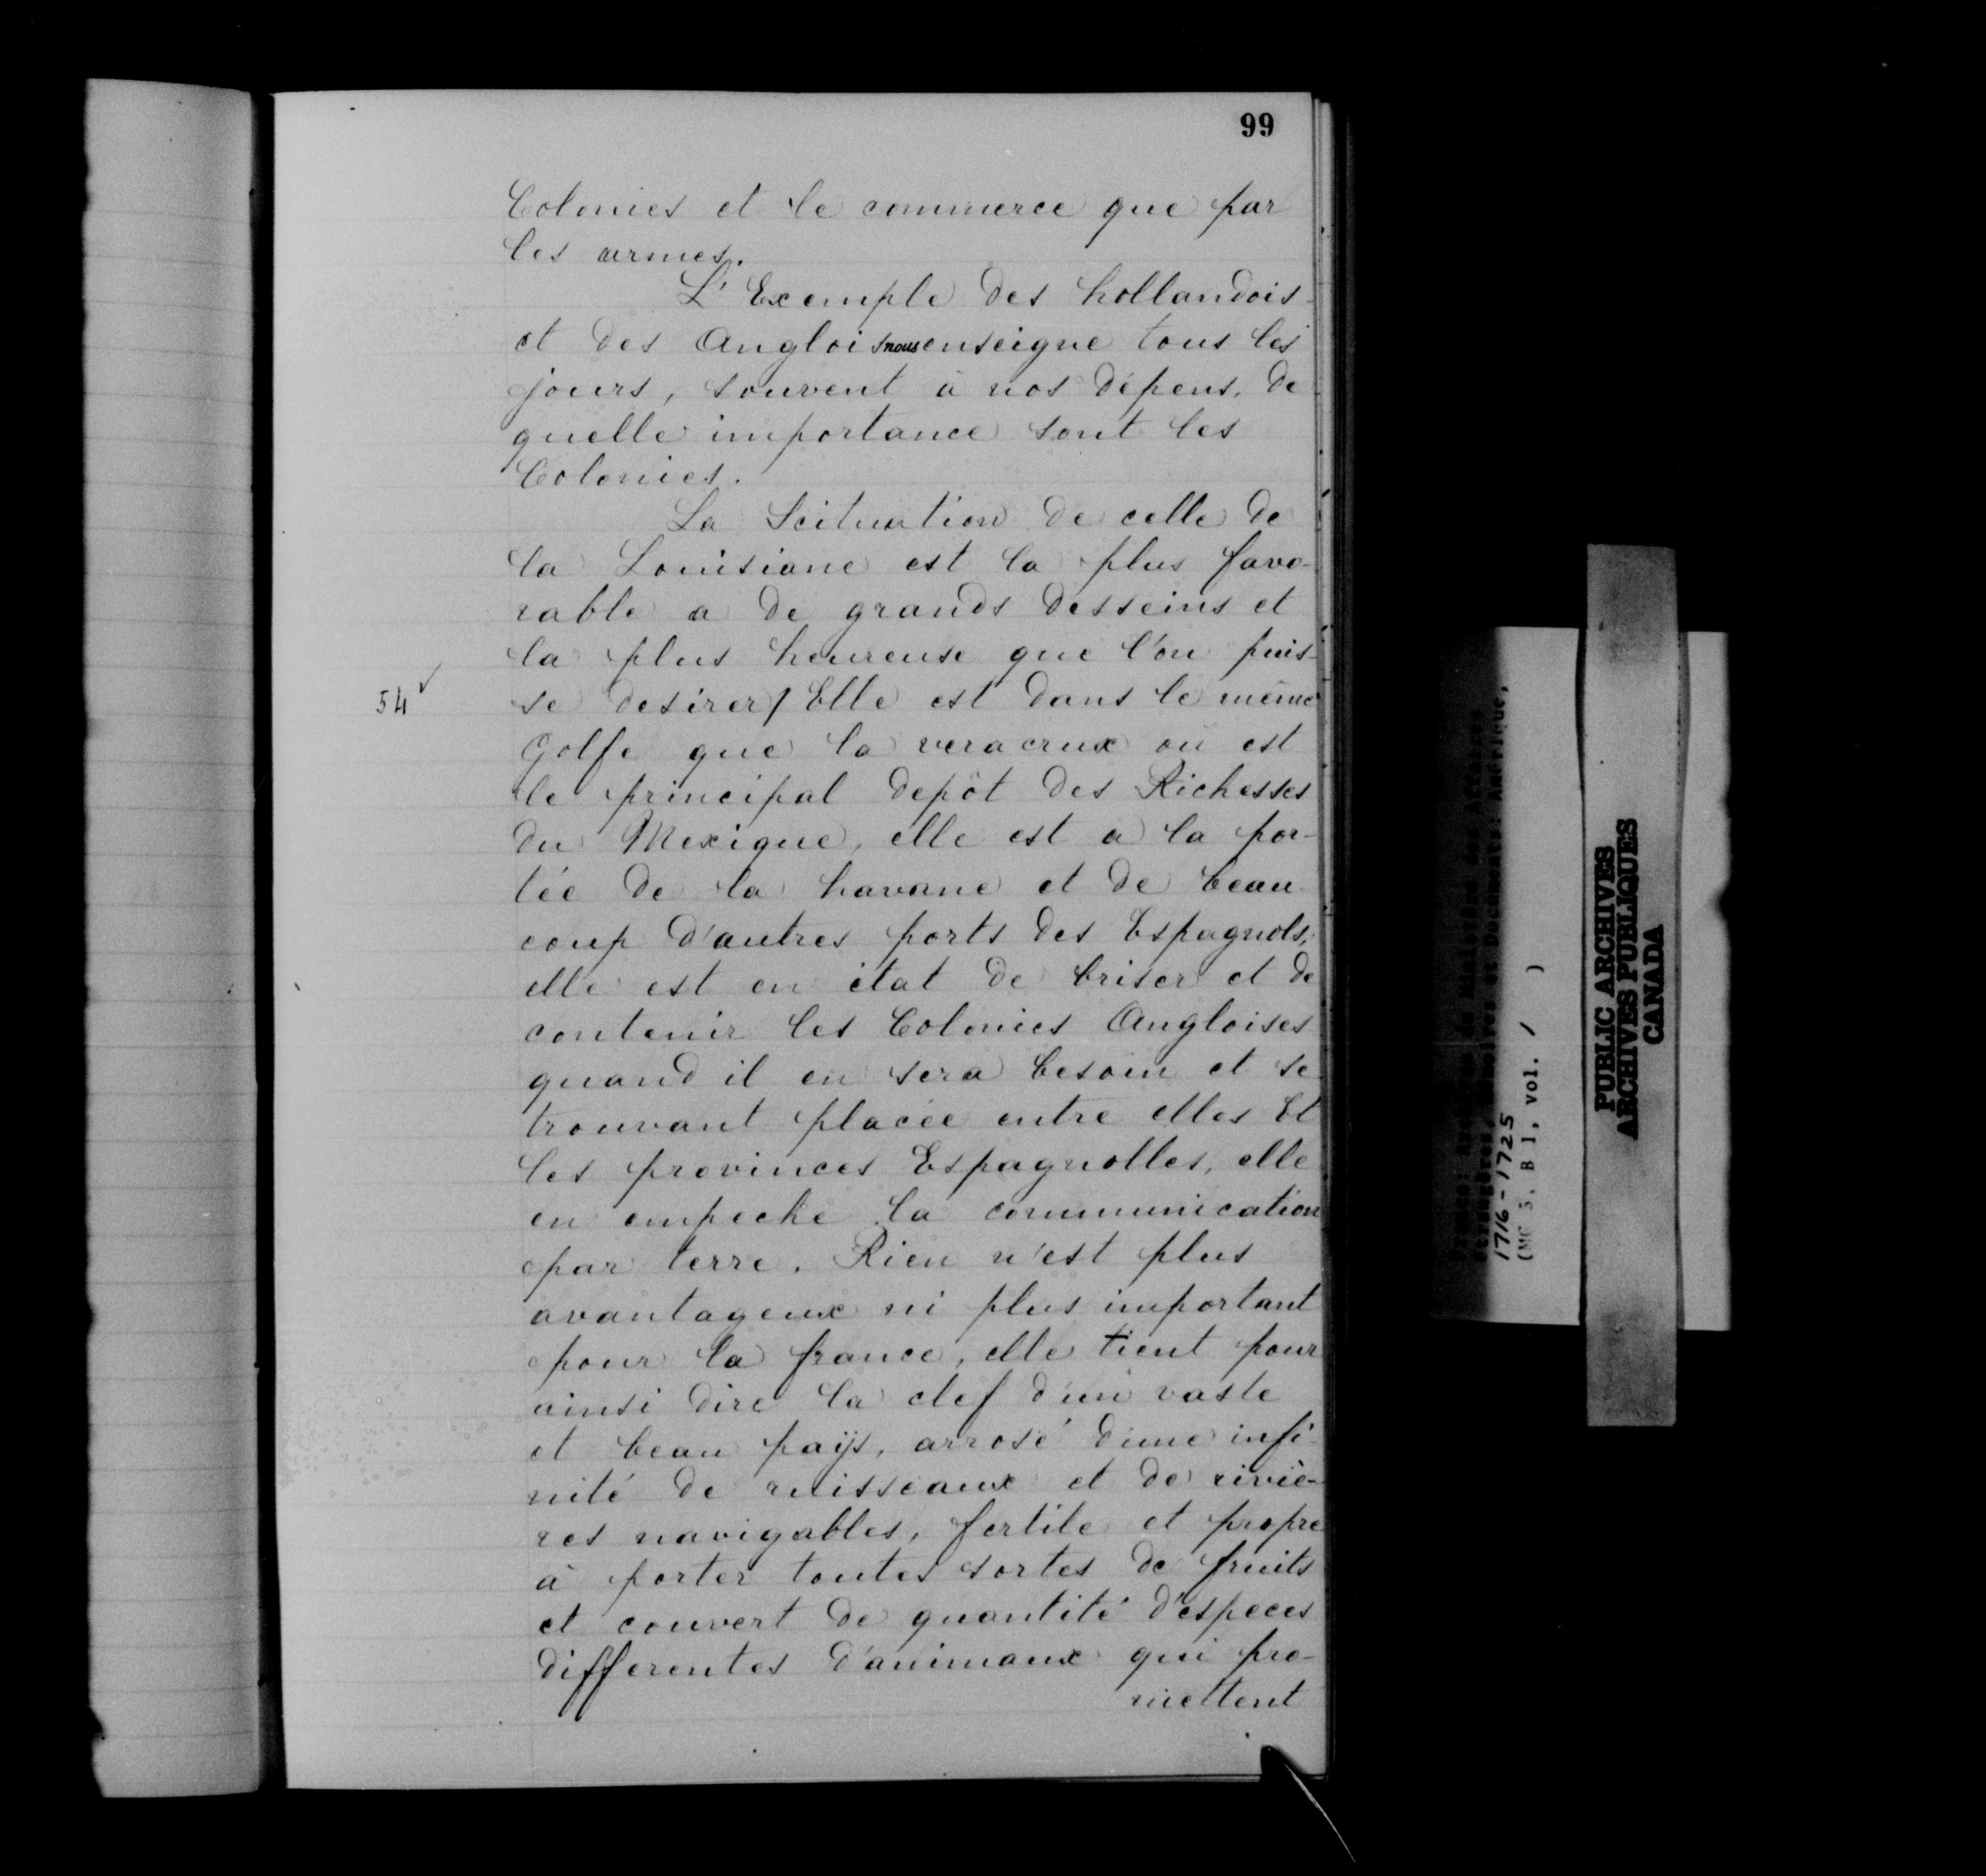 99
Colonies et le commerce que par
les armes.
L'Exemple des hollandois
et des Anglois nous enseigne tous les
jours, souvent à nos dépens, de
quelle importance sont les
Colonies.
La Scituation de celle de
la Louisiane est la plus favo-
rable a de grands desseins et
la plus heureuse que l'on puis-
54 ✓
se desirer/ Elle est dans le même
Golfe que la veracrux où est
le principal depôt des Richesses
du Mexique, elle est a la por-
tée de la havane et de beau-
coup d'autres ports des Espagnols,
elle est en état de briser et de
contenir les Colonies Angloises
quand il en sera besoin et se
trouvant placée entre elles Et
les provinces Espagnolles, elle
en empeche la communication
par terre. Rien n'est plus
avantageux ni plus important
pour la france, elle tient pour
ainsi dire la clef d'un vaste
et beau païs, arrosé d'une infi-
nité de ruisseaux et de riviè-
res navigables, fertile et propre
à porter toutes sortes de fruits
et couvert de quantité d'especes
differentes d'animaux qui pro-
mettent
1716-1725
(MG 5, B 1, vol. 1 )
PUBLIC ARCHIVES
ARCHIVES PUBLIQUES
CANADA